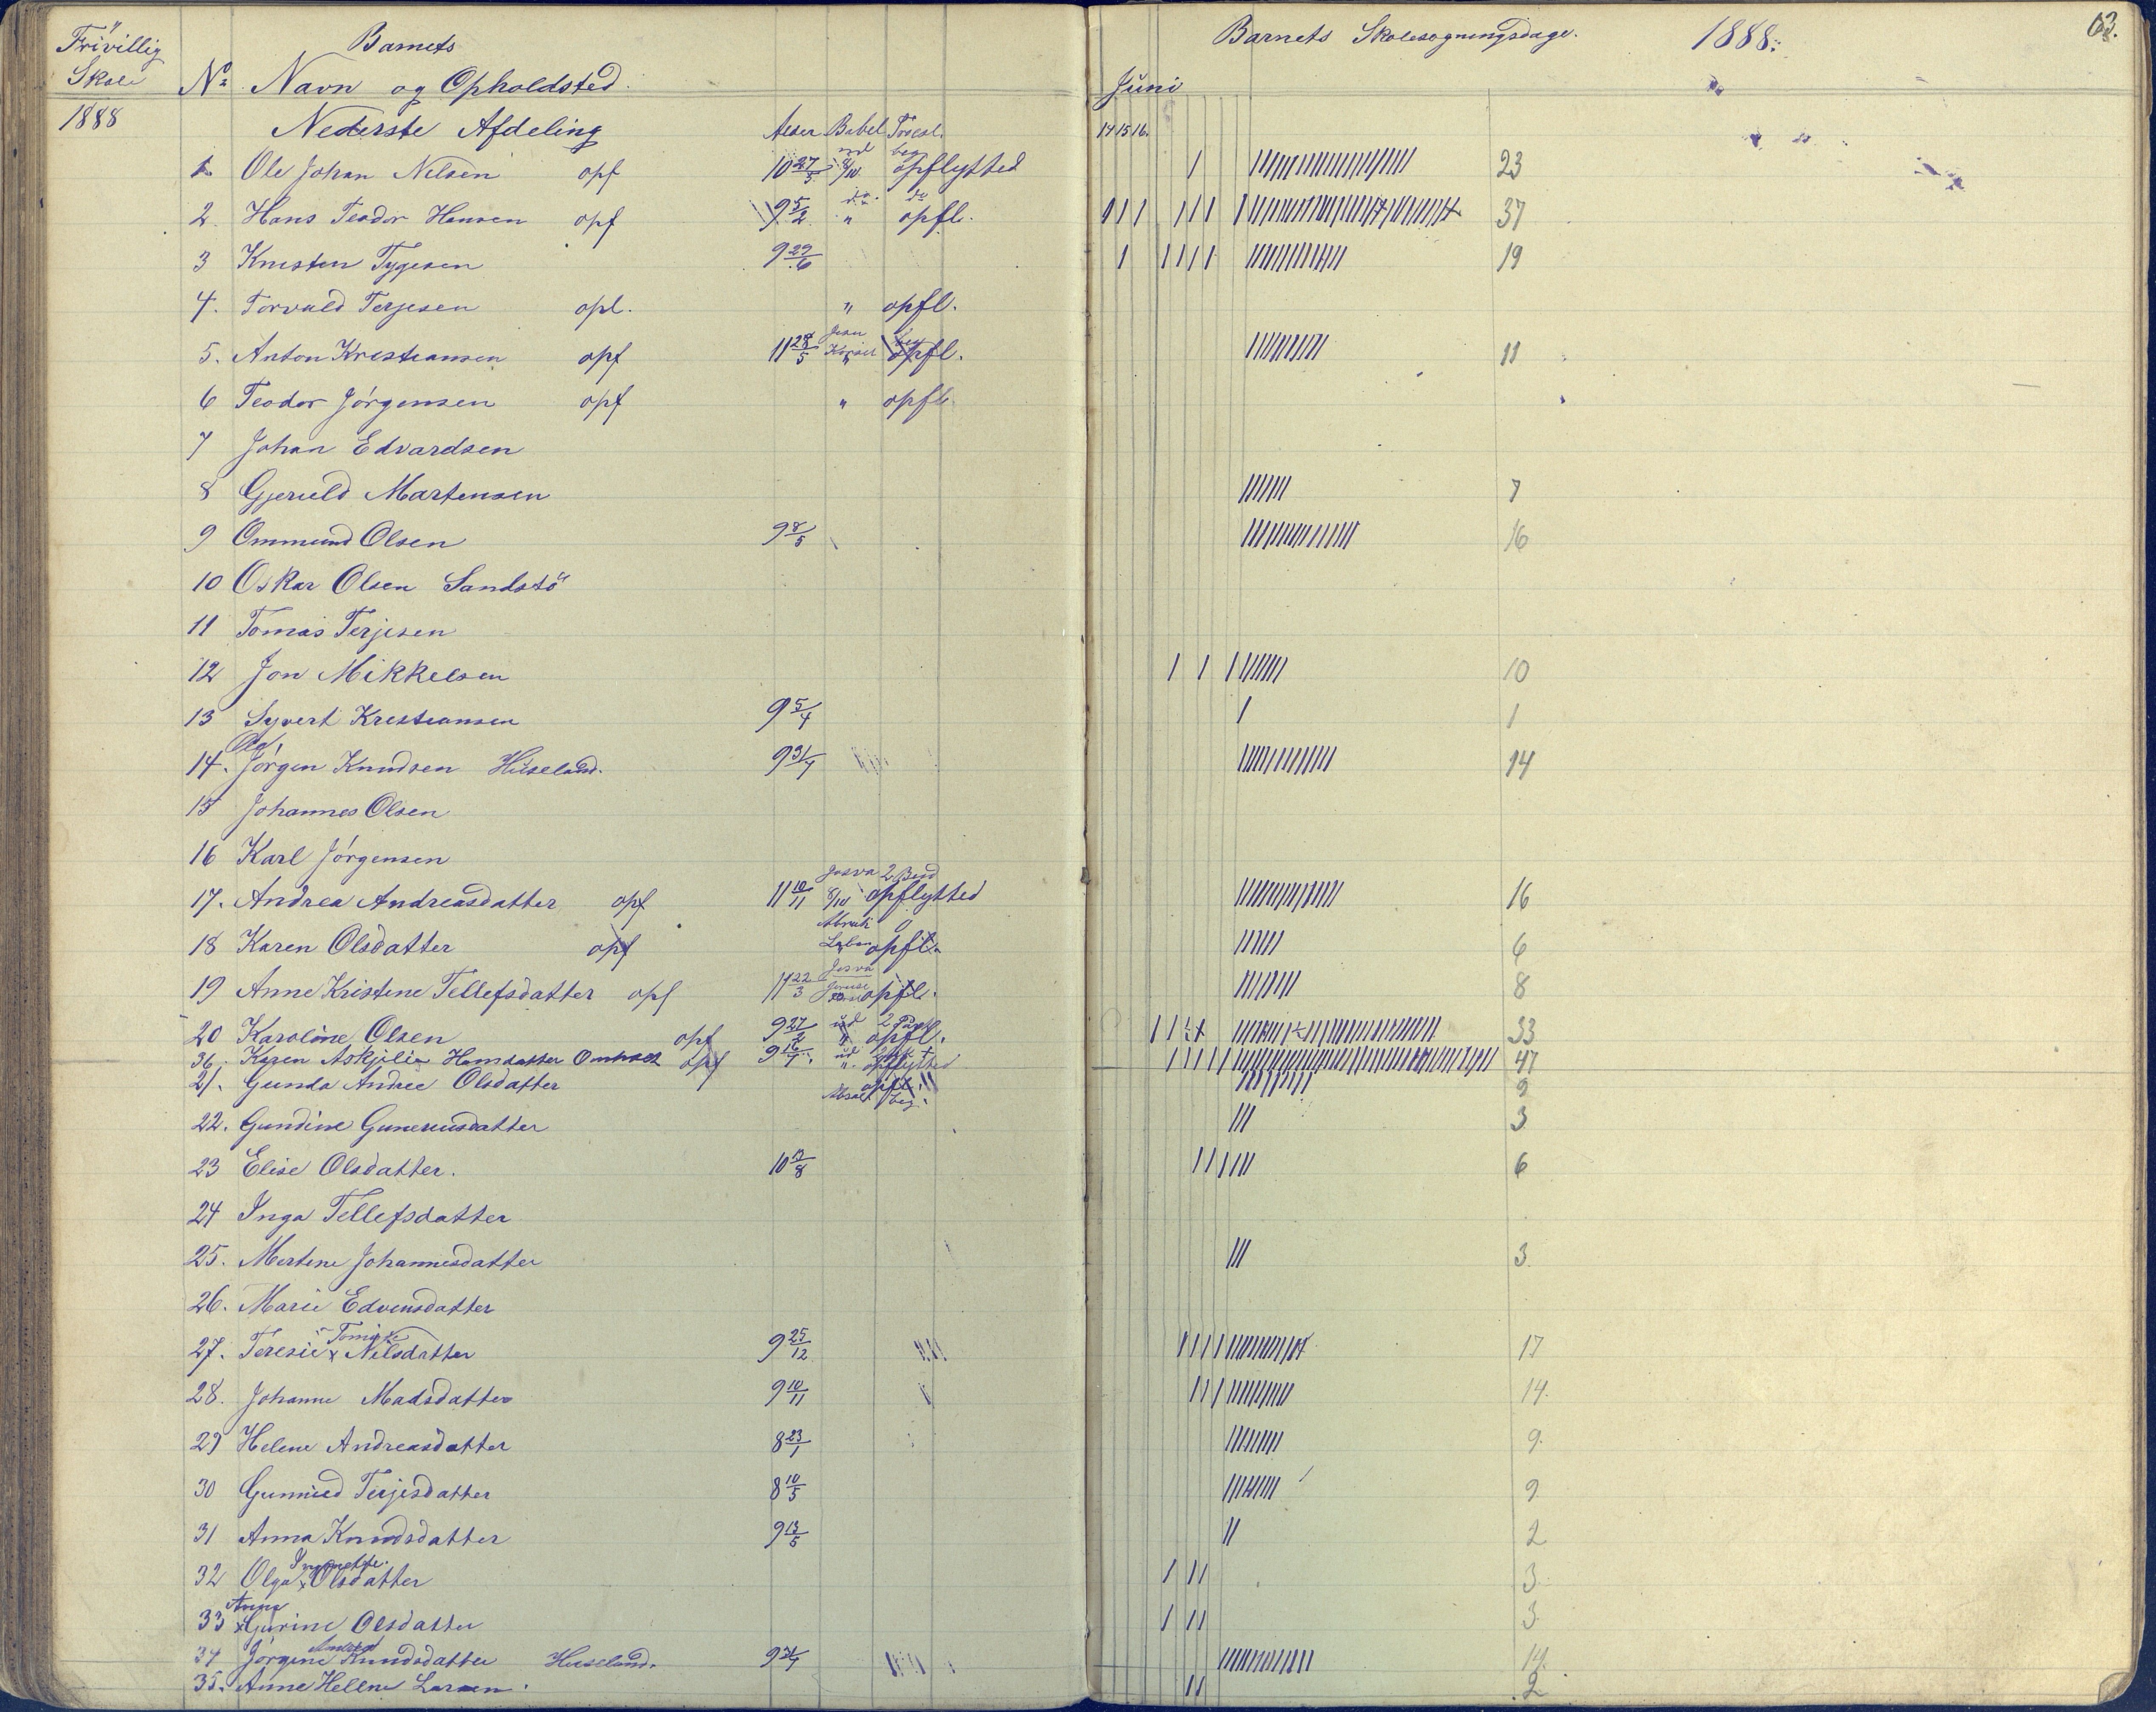 Frivillig Barnets Barnets Skolesøgningsdage. 1888. 63.
Skole No. Navn og Opholdsted. Juni
1888 Nederste Afdeling Alder Bibel Forkl. 14 15 16
1 Ole Johan Nilsen opf 10 27/5 8/10 opflytted 23
2. Hans Teodor Hansen opf 9 5/2 " do. opfl. 37
3 Kristen Tygesen 9 29/6 19
4. Torvald Terjesen opl. " opfl.
5. Anton Kristiansen opf 11 28/5 " opfl. 11
6 Teodor Jörgensen opf " opfl.
7 Johan Edvardsen
8 Gjeruld Martensen 7
9 Ommund Olsen 9 8/5 16
10 Oskar Olsen Sandstö
11 Tomas Terjesen
12 Jon Mikkelsen 10
13 Syvert Kristiansen 9 5/4 1
Ole
14. Jörgen Knudsen Huseland. 9 31/7 14
15 Johannes Olsen
16 Karl Jörgensen
Josva 2 Bud
17. Andrea Andreasdatter opf 11 10/11 8/10 opflytted 16
18 Karen Olsdatter opf opfl. 6
Josva
19 Anne Kristine Tellefsdatter opf 11 22/3 opfl. 8
20 Karoline Olsen opf 9 27/2 ud " opfl. 33
36. Karen Askjelie Hansdatter opf ud " opflytted 47
21. Gunda Andree Olsdatter opfl. beg. 9
22. Gundine Gunereusdatter 3
23 Elise Olsdatter. 6
24 Inga Tellefsdatter
25. Mertene Johannesdatter 3
26. Marie Edvensdatter
27. Teresie x Nilsdatter 9 25/12 17
28. Johanne Madsdatter 9 10/11 14.
29 Helene Andreasdatter 8 23/1 9.
30 Gunnild Terjesdatter 8 10/5 9
31 Anna Knudsdatter 9 13/5 2
32 Olga x Olsdatter 3
Anna
33 x Gurine Olsdatter 3
34 Jörgine Knudsdatter Huseland. 9 31/7 14.
35. Anne Helene Larsen. 2